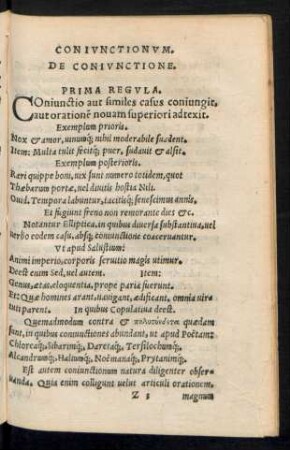 CONIVNCTIONVM.
DE CONIVNCTIONE.
PRIMA REGVLA.
COniunctio aut similes casus coniungit,
aut orationē nouam superiori adtexit.
Exemplum prioris.
Nox & amor, uinumq́; nihil moderabile suadent.
Item: Multa tulit fecitq́; puer, sudauit & alsit.
Exemplum posterioris.
Rari quippe boni, uix sunt numero totidem, quot
Thæbarum portæ, uel diuitis hostia Nili.
Ouid. Tempora labuntur, tacitisq́; senescimus annis.
Et fugiunt freno non remorante dies &c.
Notantur Elliptica, in quibus diuersa substantiua, uel
uerbo eodem casu, absq́; coniunctione coaceruantur.
Vt apud Salustium:
Animi imperio, corporis seruitio magis utimur.
Deest enim Sed, uel autem. Item:
Genus, ætas, eloquentia, prope paria fuerunt.
Et: Quæ homines arant, nauigant, ædificant, omnia uir
tuti parent. In quibus Copulatiua deest.
Quemadmodum contra & πολυσύνδετα quædam
sunt, in quibus coniunctiones abundant, ut apud Poëtam:
Chloreaq́;, Sibarimq́;, Daretaq́;, Tersilochumq́;,
Alcandrumq́;, Haliumq́;, Noëmonaq́;, Prytanimq́;.
Est autem coniunctionum natura diligenter obser
uanda. Quia enim colligunt uelut articuli orationem,
Z 1 magnum